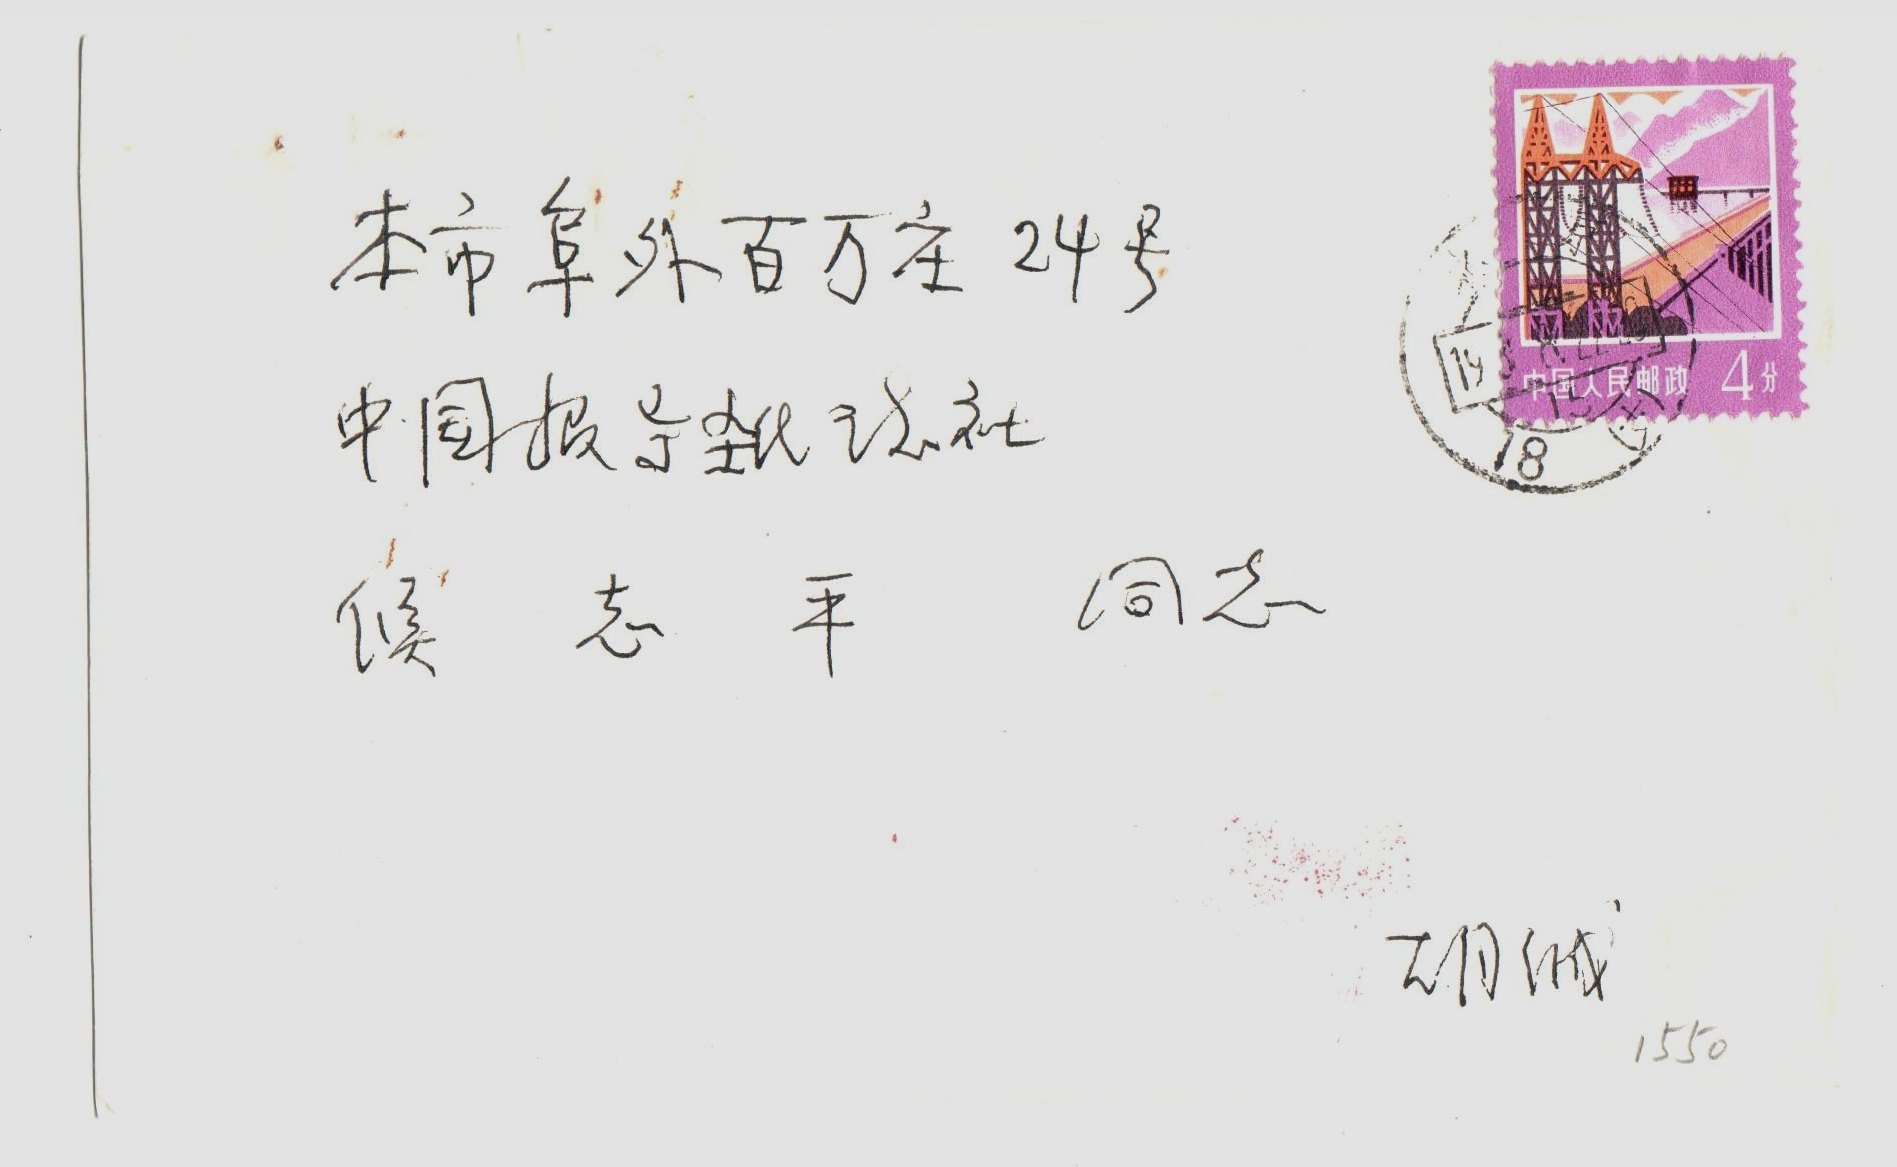 本市阜外百万庄24号
中国报导杂志社
侯志平 同志
中国人民邮政 4分
18
胡
1550